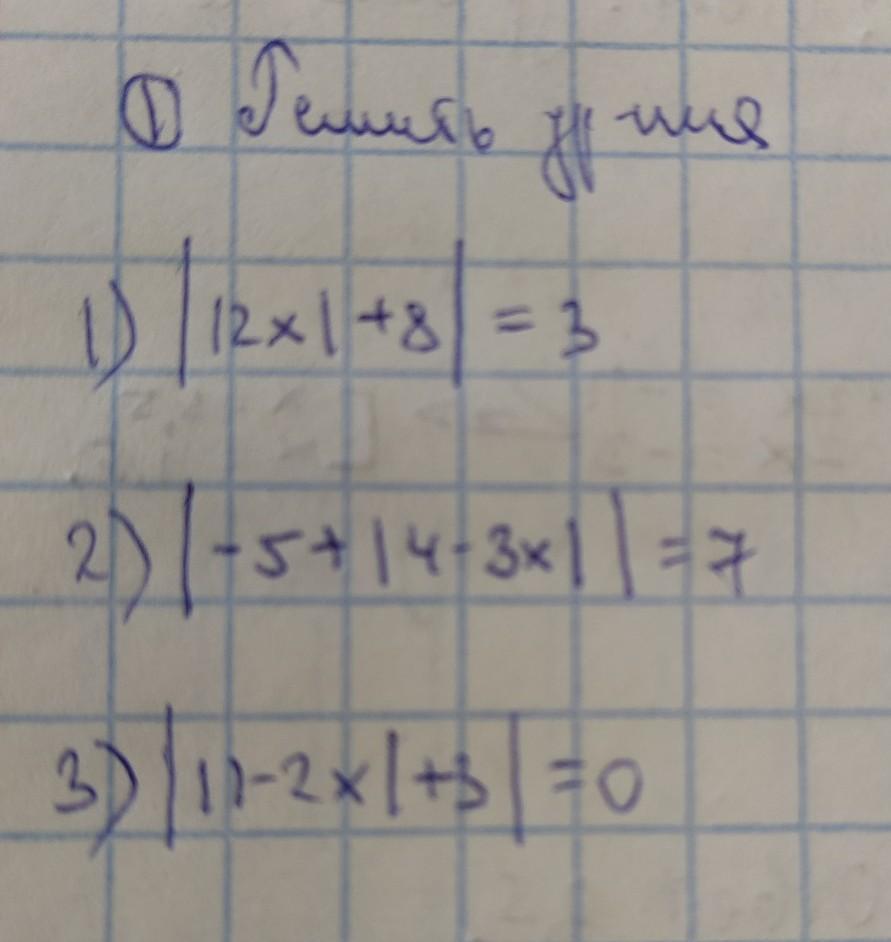 ① Решить ур-ния
1) ||2x|+8| = 3
2) |-5+|4-3x|| = 7
3) ||1-2x|+3| = 0